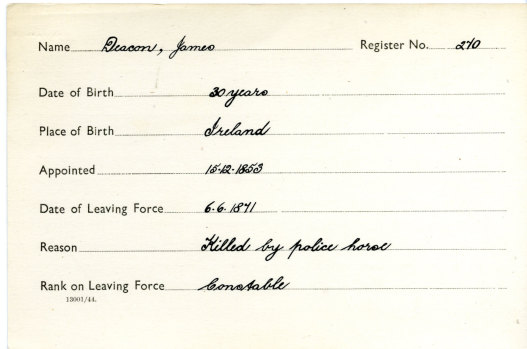 Name Deacon, James Register No. 270
Date of Birth 30 years
Place of Birth Ireland
Appointed 15-12-1853
Date of Leaving Force 6.6.1871
Reason Killed by police horse
Rank on Leaving Force Constable
13001/44.